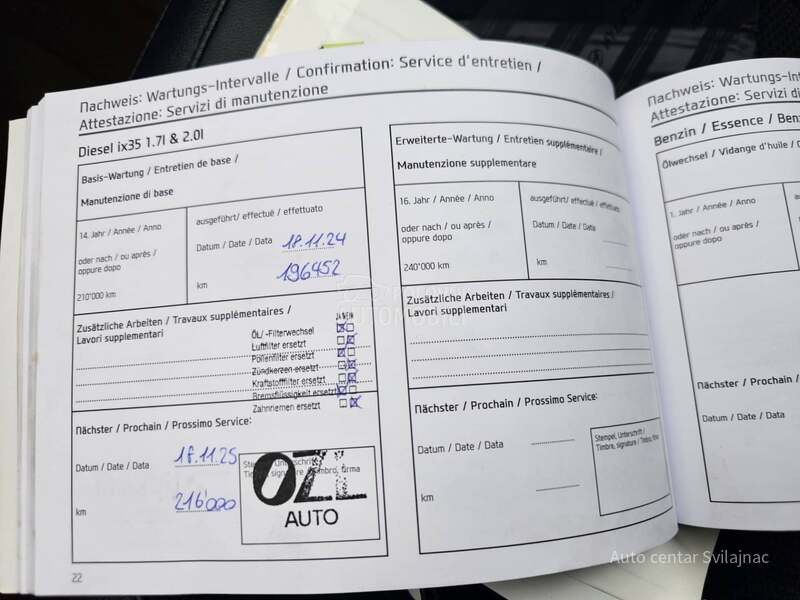 Nachweis: Wartungs-Intervalle / Confirmation: Service d'entretien /
Attestazione: Servizi di manutenzione
Diesel ix35 1.7l & 2.0l
Basis-Wartung / Entretien de base /
Manutenzione di base
14. Jahr / Année / Anno
oder nach / ou après /
oppure dopo
210'000 km
ausgeführt/ effectué / effettuato
Datum / Date / Data 18.11.24
km 196452
Zusätzliche Arbeiten / Travaux supplémentaires /
Lavori supplementari
JA NEIN
ÖL/ -Filterwechsel
Luftfilter ersetzt
Pollenfilter ersetzt
Zündkerzen ersetzt
Kraftstofffilter ersetzt
Bremsflüssigkeit ersetzt
Zahnriemen ersetzt
Nächster / Prochain / Prossimo Service:
Datum / Date / Data 18.11.25
km 216'000
OZL
AUTO
22
Erweiterte-Wartung / Entretien supplémentaire /
Manutenzione supplementare
16. Jahr / Année / Anno
oder nach / ou après /
oppure dopo
240'000 km
ausgeführt/ effectué / effettuato
Datum / Date / Data
km
Zusätzliche Arbeiten / Travaux supplémentaires /
Lavori supplementari
Nächster / Prochain / Prossimo Service:
Datum / Date / Data
km
Stempel, Unterschrift /
Timbre, signature / Timbro, firma
Nachweis: Wartungs-Int
Attestazione: Servizi di
Benzin / Essence / Ben
Ölwechsel / Vidange d'huile /
1. Jahr / Année / Anno
oder nach / ou après /
oppure dopo
Nächster / Prochain /
Datum / Date / Data
km
Auto centar Svilajnac